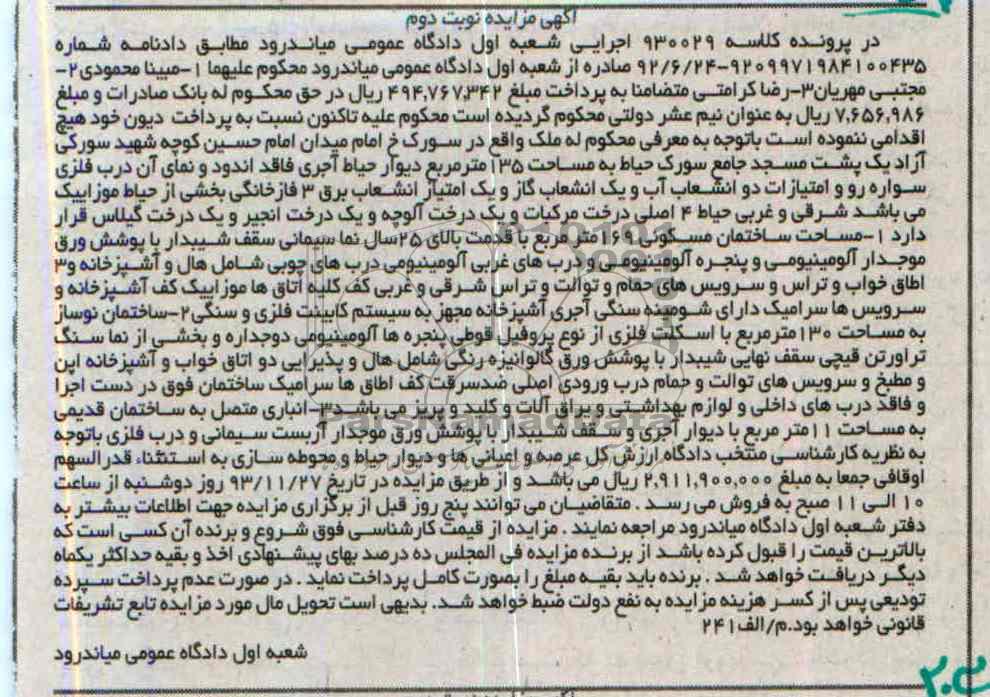 آگهی مزایده نوبت دوم
در پرونده کلاسه ۹۳۰۰۲۹ اجرایی شعبه اول دادگاه عمومی میاندرود مطابق دادنامه شماره
۹۲۰۹۹۷۱۹۸۴۱۰۰۴۳۵-۹۲/۶/۲۴ صادره از شعبه اول دادگاه عمومی میاندرود محکوم علیهما ۱-مبینا محمودی۲-
مجتبی مهریان۳-رضا کرامتی متضامنا به پرداخت مبلغ ۴۹۴,۷۶۷,۳۴۲ ریال در حق محکوم له بانک صادرات و مبلغ
۷,۶۵۶,۹۸۶ ریال به عنوان نیم عشر دولتی محکوم گردیده است محکوم علیه تاکنون نسبت به پرداخت دیون خود هیچ
اقدامی ننموده است باتوجه به معرفی محکوم له ملک واقع در سورک خ امام میدان امام حسین کوچه شهید سورکی
آزاد یک پشت مسجد جامع سورک حیاط به مساحت ۱۳۵ مترمربع دیوار حیاط آجری فاقد اندود و نمای آن درب فلزی
سواره رو و امتیازات دو انشعاب آب و یک انشعاب گاز و یک امتیاز انشعاب برق ۳ فازخانگی بخشی از حیاط موزاییک
می باشد شرقی و غربی حیاط ۴ اصلی درخت مرکبات و یک درخت آلوچه و یک درخت انجیر و یک درخت گیلاس قرار
دارد ۱-مساحت ساختمان مسکونی ۱۶۱ متر مربع با قدمت بالای ۲۵سال نما سیمانی سقف شیبدار با پوشش ورق
موجدار آلومینیومی و پنجره آلومینیومی و درب های غربی آلومینیومی درب های چوبی شامل هال و آشپزخانه و۳
اطاق خواب و تراس و سرویس های حمام و توالت و تراس شرقی و غربی کف کلیه اتاق ها موزاییک کف آشپزخانه و
سرویس ها سرامیک دارای شومینه سنگی آجری آشپزخانه مجهز به سیستم کابینت فلزی و سنگی۲-ساختمان نوساز
به مساحت ۱۳۰مترمربع با اسکلت فلزی از نوع پروفیل قوطی پنجره ها آلومینیومی دوجداره و بخشی از نما سنگ
تراورتن قیچی سقف نهایی شیبدار با پوشش ورق گالوانیزه رنگی شامل هال و پذیرایی دو اتاق خواب و آشپزخانه اپن
و مطبخ و سرویس های توالت و حمام درب ورودی اصلی ضدسرقت کف اطاق ها سرامیک ساختمان فوق در دست اجرا
و فاقد درب های داخلی و لوازم بهداشتی و یراق آلات و کلید و پریز می باشد۳-انباری متصل به ساختمان قدیمی
به مساحت ۱۱متر مربع با دیوار آجری و سقف شیبدار با پوشش ورق موجدار آزبست سیمانی و درب فلزی باتوجه
به نظریه کارشناسی منتخب دادگاه ارزش کل عرصه و اعیانی ها و دیوار حیاط و محوطه سازی به استثناء قدرالسهم
اوقافی جمعا به مبلغ ۲,۹۱۱,۹۰۰,۰۰۰ ریال می باشد و از طریق مزایده در تاریخ ۹۳/۱۱/۲۷ روز دوشنبه از ساعت
۱۰ الی ۱۱ صبح به فروش می رسد . متقاضیان می توانند پنج روز قبل از برگزاری مزایده جهت اطلاعات بیشتر به
دفتر شعبه اول دادگاه میاندرود مراجعه نمایند . مزایده از قیمت کارشناسی فوق شروع و برنده آن کسی است که
بالاترین قیمت را قبول کرده باشد از برنده مزایده فی المجلس ده درصد بهای پیشنهادی اخذ و بقیه حداکثر یکماه
دیگر دریافت خواهد شد . برنده باید بقیه مبلغ را بصورت کامل پرداخت نماید . در صورت عدم پرداخت سپرده
تودیعی پس از کسر هزینه مزایده به نفع دولت ضبط خواهد شد. بدیهی است تحویل مال مورد مزایده تابع تشریفات
قانونی خواهد بود.م/الف۲۴۱
شعبه اول دادگاه عمومی میاندرود
ParsNamadData